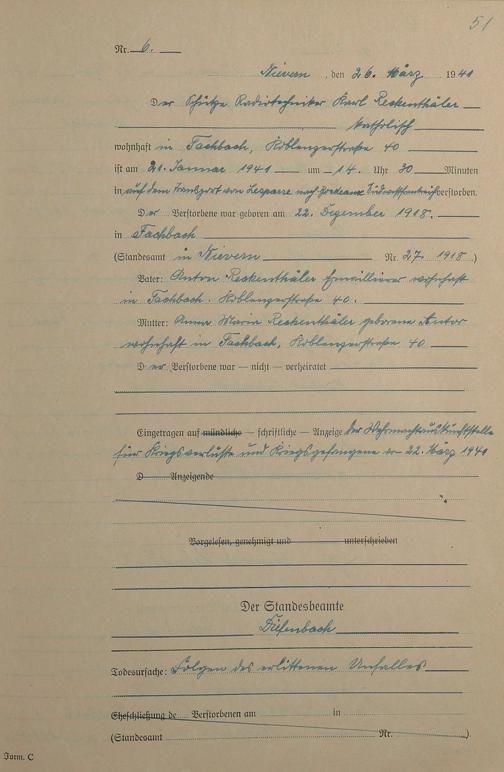 51
Nr. 6.
Nievern, den 26. März 1941
Der Schütze Radiotechniker Karl Reckenthäler
katholisch
wohnhaft in Fachbach, Koblenzerstraße 40
ist am 21. Januar 1941 um 14 Uhr 30 Minuten
in auf dem Transport von Lesparre nach Bordeaux Südwestfrankreich verstorben.
Der Verstorbene war geboren am 22. Dezember 1918.
in Fachbach
(Standesamt in Nievern Nr. 27. 1918.)
Vater: Anton Reckenthäler Emaillierer wohnhaft
in Fachbach. Koblenzerstraße 40.
Mutter: Anna Maria Reckenthäler geborene
wohnhaft in Fachbach, Koblenzerstraße 40
Der Verstorbene war — nicht — verheiratet
Eingetragen auf mündliche — schriftliche — Anzeige der Wehrmachtauskunftstelle
für Kriegsverluste und Kriegsgefangene 22. März 1941
D Anzeigende
Vorgelesen, genehmigt und unterschrieben
Der Standesbeamte
Diefenbach
Todesursache: Folgen des erlittenen Unfalles
Eheschließung de Verstorbenen am in
(Standesamt Nr. ).
Form. C